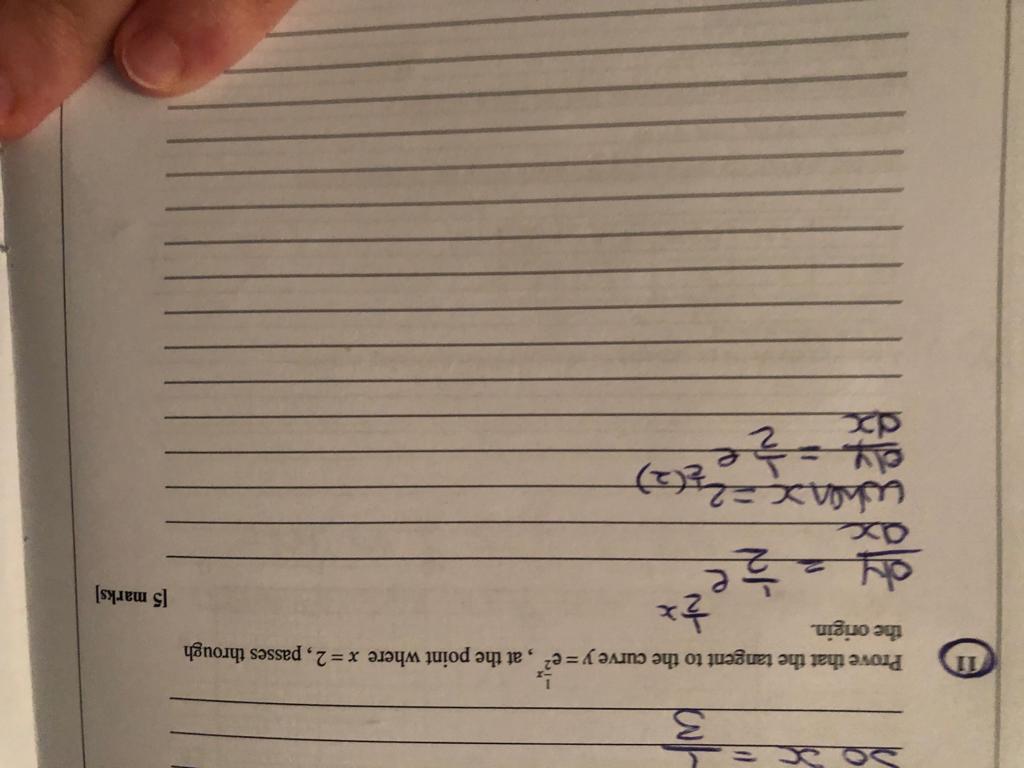 so x = 1/3
11 Prove that the tangent to the curve y = e^(1/2 x), at the point where x = 2, passes through
the origin.
[5 marks]
dy/dx = 1/2 e^(1/2 x)
when x = 2
dy/dx = 1/2 e^(1/2 (2))